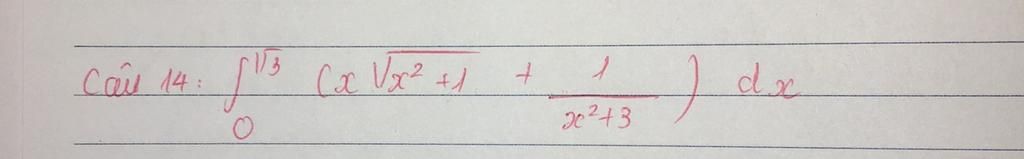 Câu 14: ∫₀^√3 (x √(x² + 1) + 1/(x² + 3)) dx